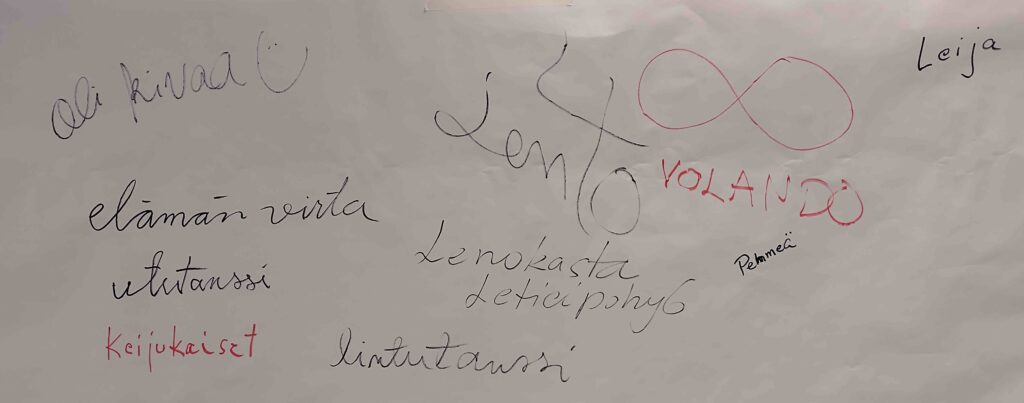 oli kivaa
Lento
VOLANDO
Leija
elämän virta
Pehmeä
Lenokasta
ututanssi
keijukaiset
lintutanssi